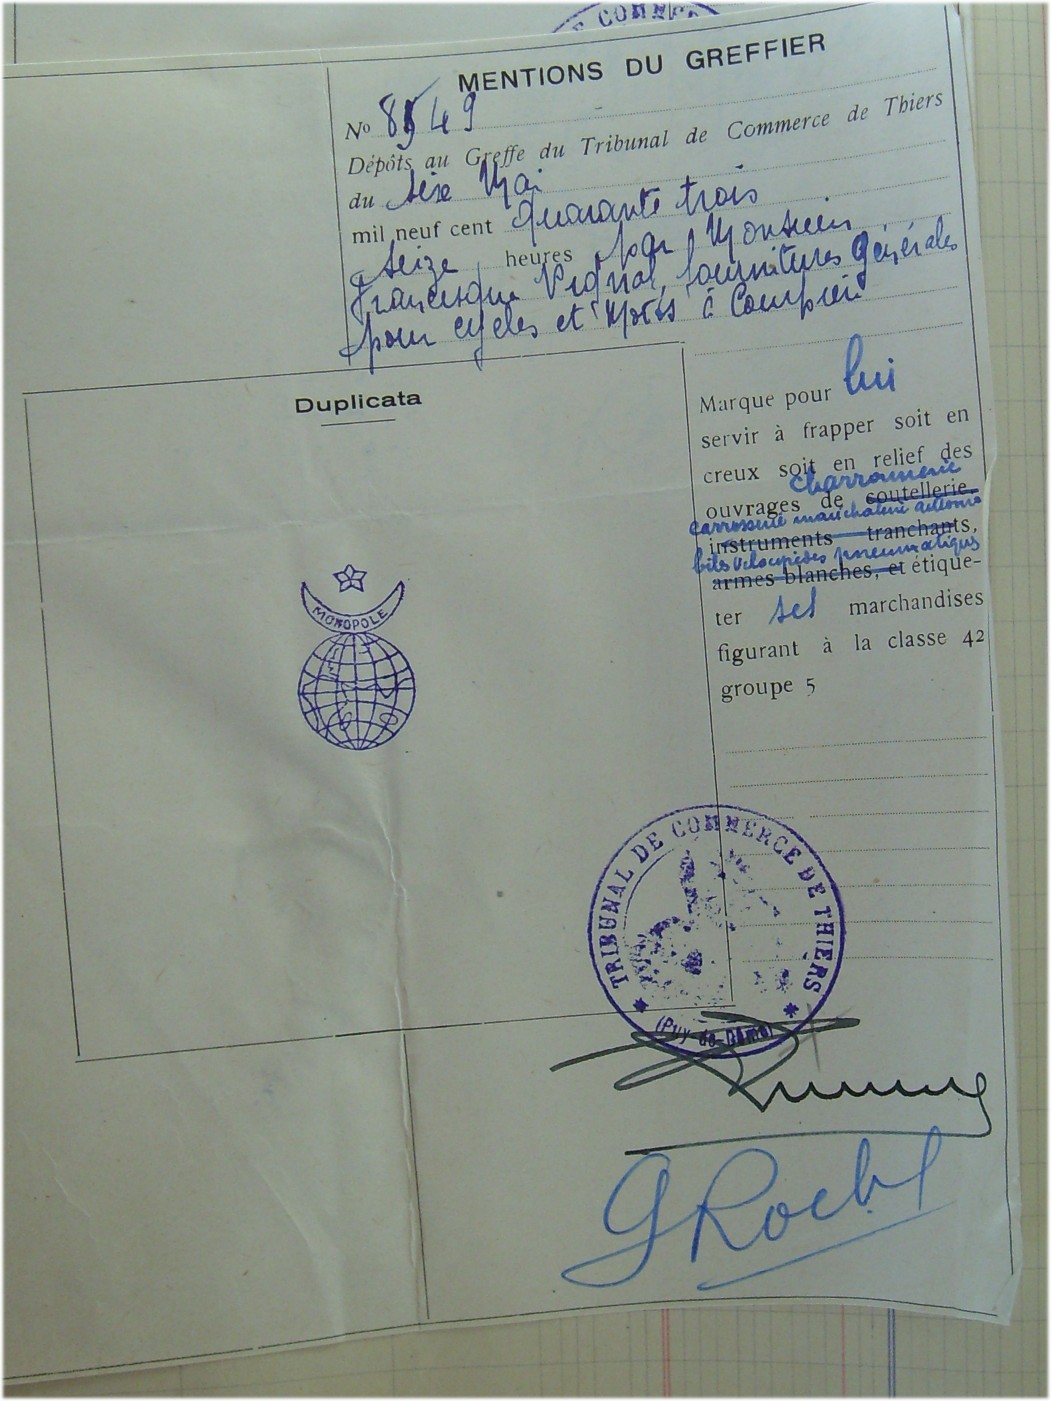 E COMME
MENTIONS DU GREFFIER
No 8549
Dépôts au Greffe du Tribunal de Commerce de Thiers
du Six Mai
mil neuf cent quarante trois
seize heures par Monsieur
Francisque Vignal, fournitures générales
pour cycles et Motos à
Duplicata
MONOPOLE
Marque pour lui
servir à frapper soit en
creux soit en relief des
charronnerie
ouvrages de coutellerie,
carrosserie maréchalerie automo
instruments tranchants,
biles vélocipèdes pneumatiques
armes blanches, et étique-
ter ses marchandises
figurant à la classe 42
groupe 5
TRIBUNAL DE COMMERCE DE THIERS
(Puy-de-Dôme)